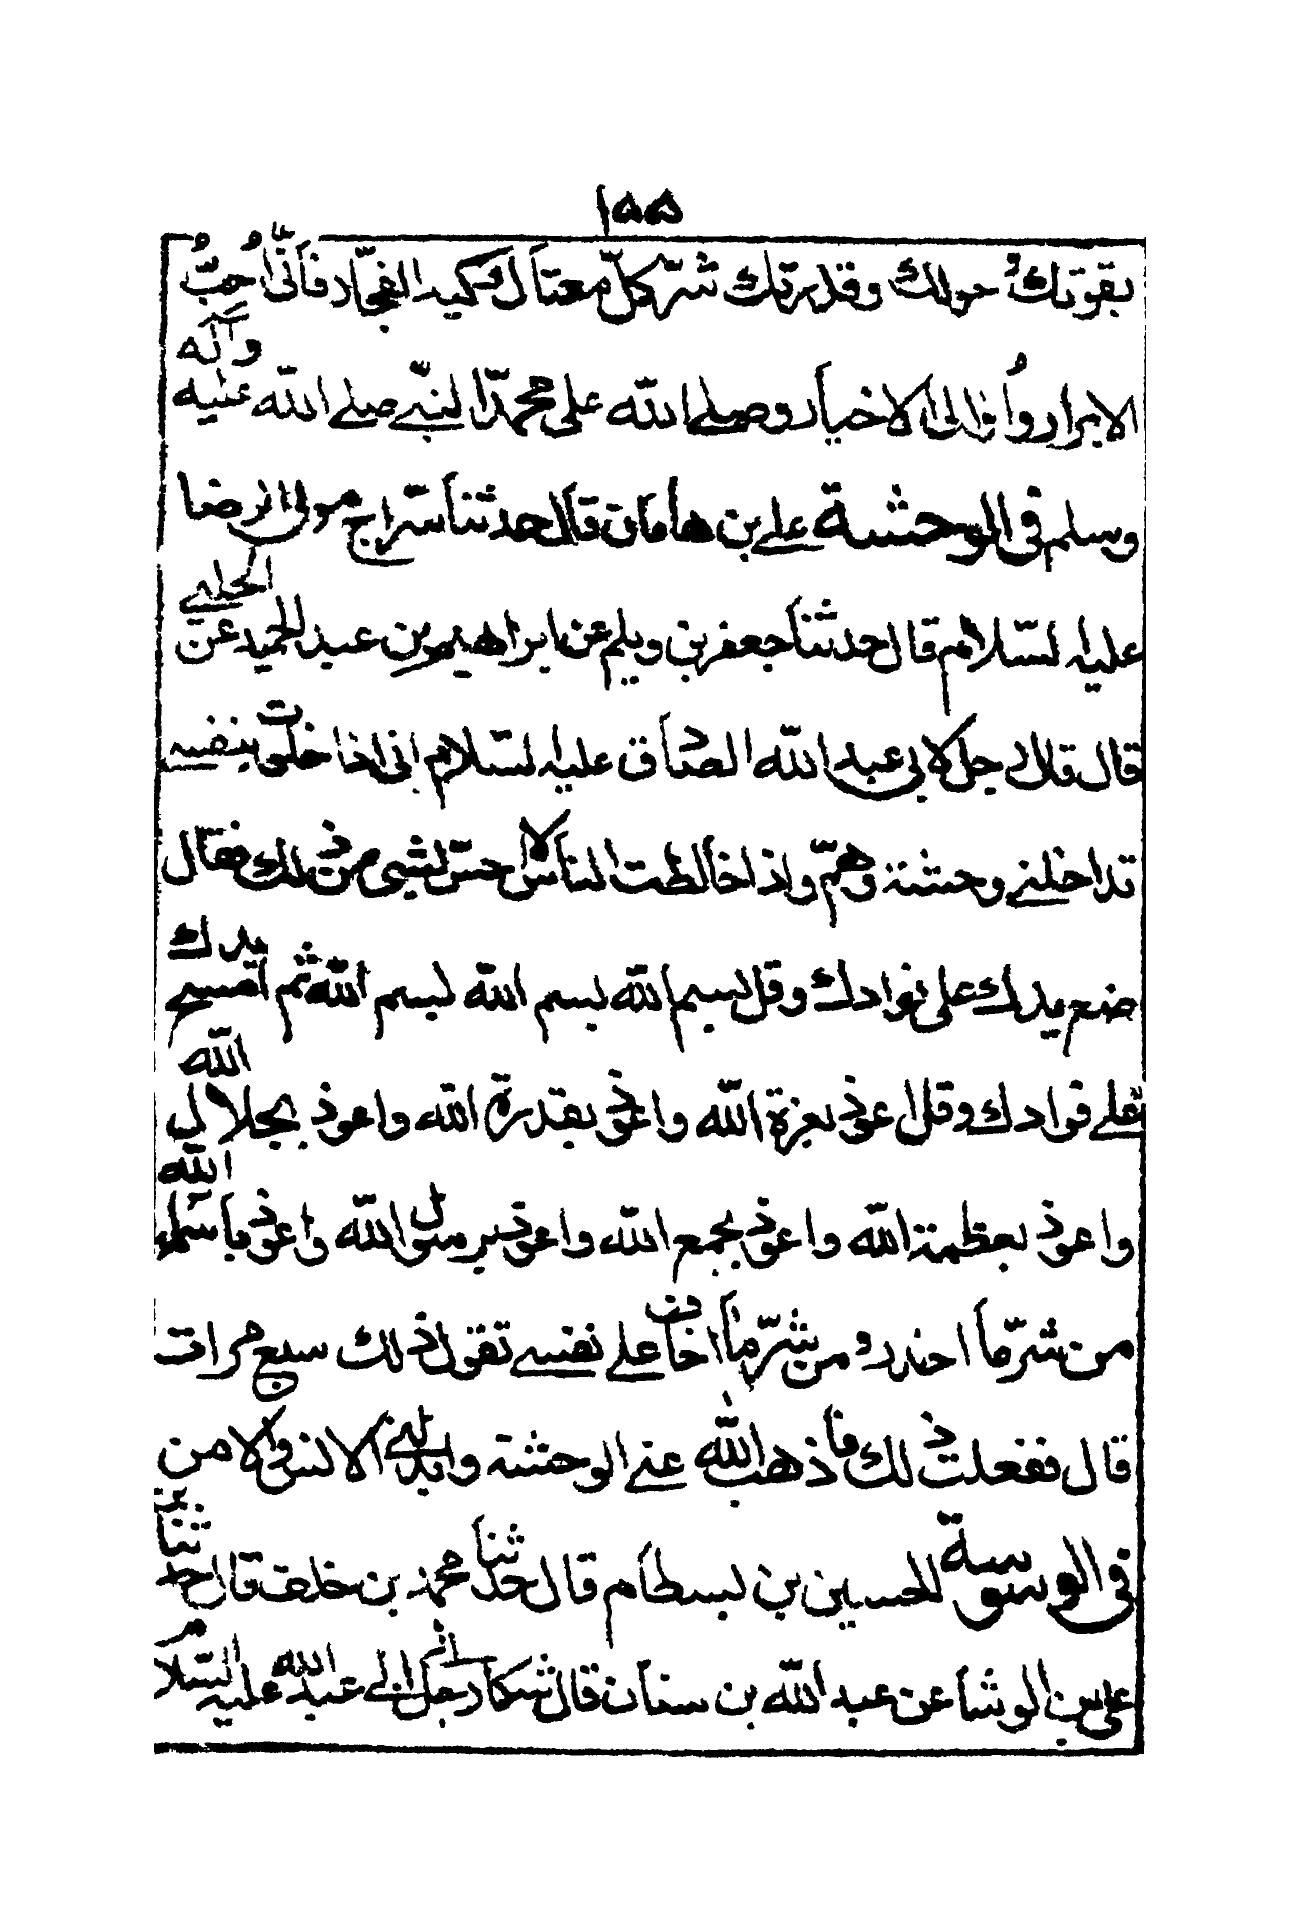 ١٥٥
بقوتك وحولك وقدرتك شر كل معتال وكيد الفجاد فأني أحب
الابرار واوالى الاخيار وصلى الله على محمد النبي صلى الله عليه وآله
وسلم في الوحشة علي بن هامان قال حدثنا سراج مولى الرضا
عليه السلام قال حدثنا جعفر بن ويلم عن ابراهيم بن عبد الحميد عن الحلبي
قال قال رجل لابي عبد الله الصادق عليه السلام اني اذا خلوت بنفسي
تداخلني وحشة وهم واذا خالطت الناس لا احس لشيء من ذلك فقال
ضع يدك على فوادك وقل بسم الله بسم الله بسم الله ثم امسح يدك
على فوادك وقل اعوذ بعزة الله واعوذ بقدرة الله واعوذ بجلال الله
واعوذ بعظمة الله واعوذ بجمع الله واعوذ برسول الله واعوذ بأسماء الله
من شر ما احذر ومن شر ما اخاف على نفسي تقول ذلك سبع مرات
قال ففعلت ذلك فاذهب الله عني الوحشة وابدلني الانس والامن
في الوسوسة للحسين بن بسطام قال حدثنا محمد بن خلف قال حدثنا
علي بن الوشا عن عبد الله بن سنان قال شكا رجل الى ابي عبد الله عليه السلام